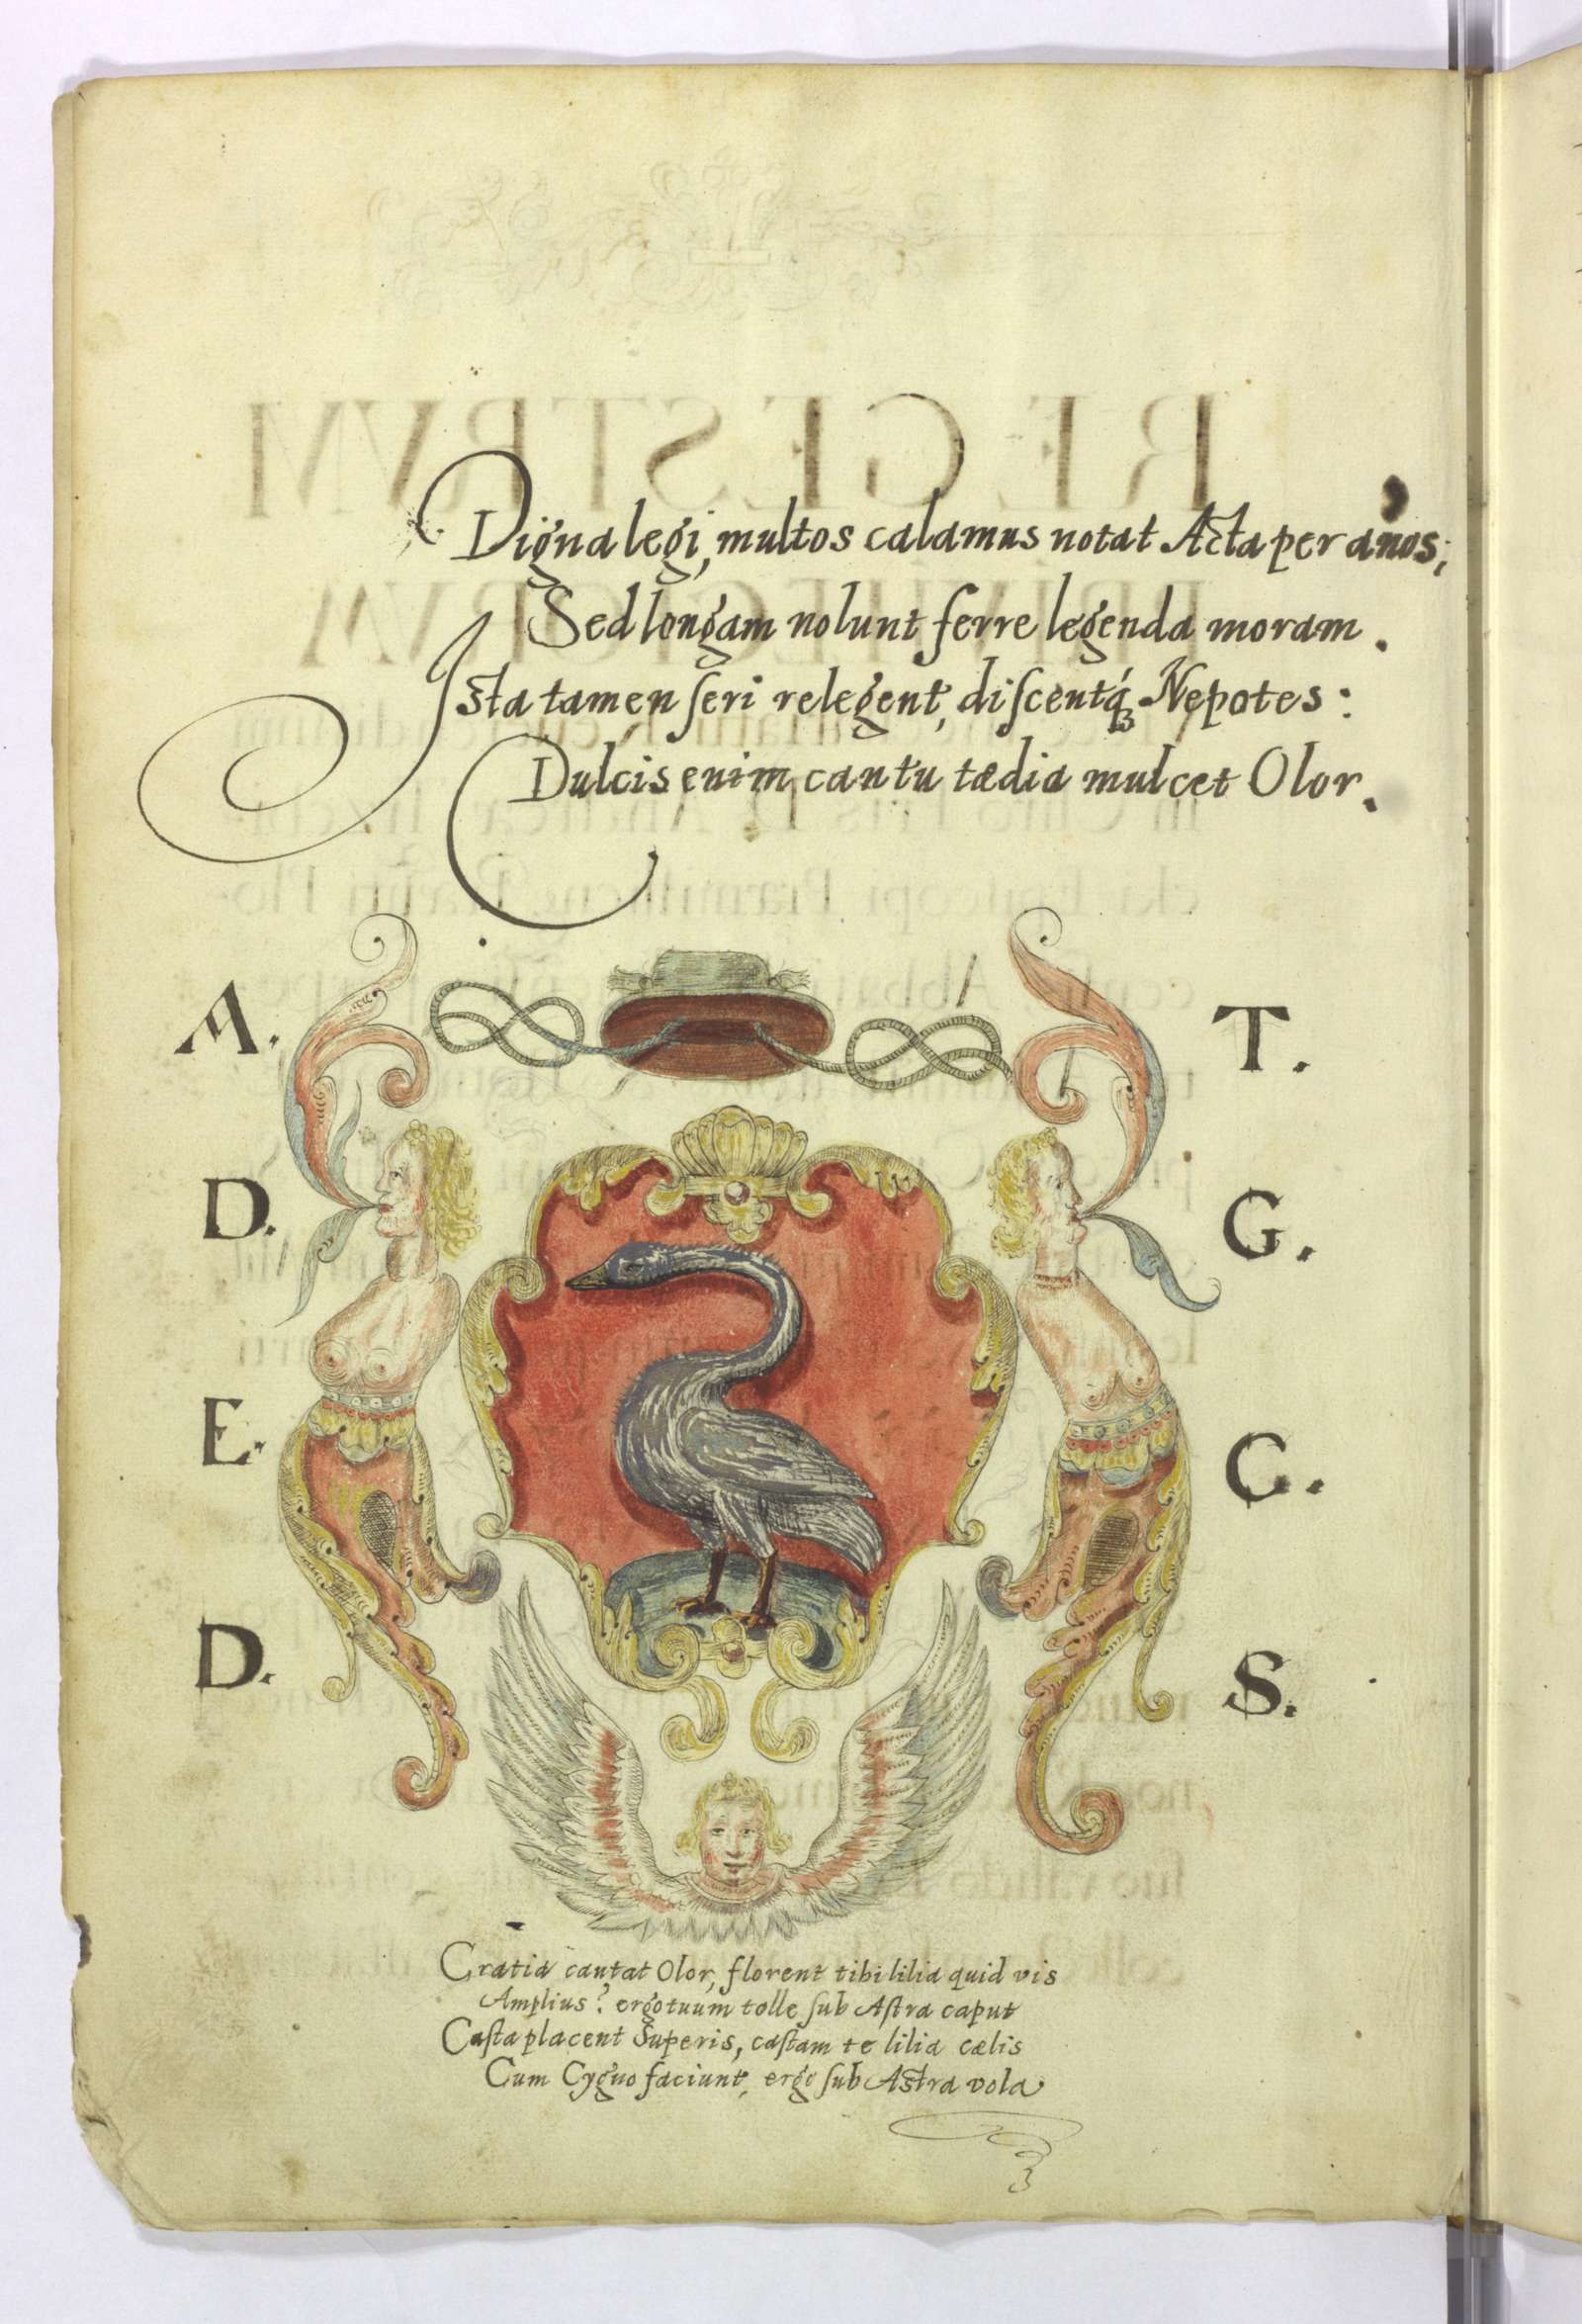 Digna legi, multos calamus notat Acta per anos;
Sed longam nolunt ferre legenda moram.
Ista tamen ſeri relegent, diſcentq́ꝫ Nepotes:
Dulcis enim cantu tædia mulcet Olor.
A. T.
D. G.
E. C.
D. S.
Gratia cantat Olor, florent tibi lilia quid vis
Amplius? ergo tuum tolle ſub Aſtra caput
Caſta placent Superis, caſtam te lilia cælis
Cum Cygno faciunt, ergo ſub Astra vola